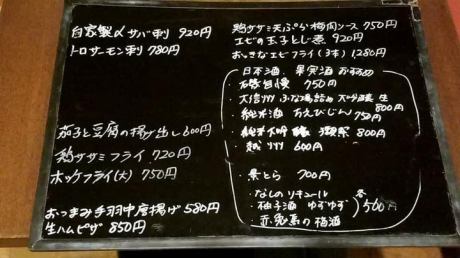 自家製〆サバ刺 920円
トロサーモン刺 780円
茄子と豆腐の揚げ出し 600円
鶏ササミフライ 720円
ホッケフライ(大) 750円
おつまみ手羽中唐揚げ 580円
生ハムピザ 850円
鶏ササミ天ぷら梅肉ソース 750円
エビの玉子とじ煮 920円
おっきなエビフライ(3本) 1280円
日本酒、果実酒 おすすめ
・磯自慢 750円
・大信州 生 800円
・純米酒 750円
・純米大吟醸 獺祭 800円
・越州 600円
・景とら 700円
・なしのリキュール
・柚子酒 ゆずゆず
・赤兎馬の梅酒
各500円